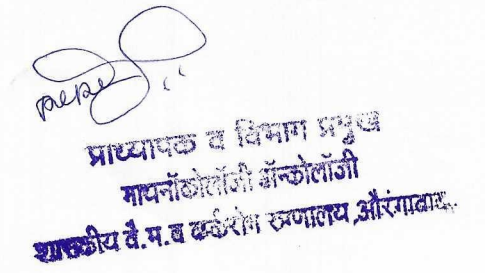 प्राध्यापक व विभाग प्रमुख
गायनॉकोलॉजी ऑन्कोलॉजी
शासकीय वै.म.व कर्करोग रुग्णालय,औरंगाबाद.